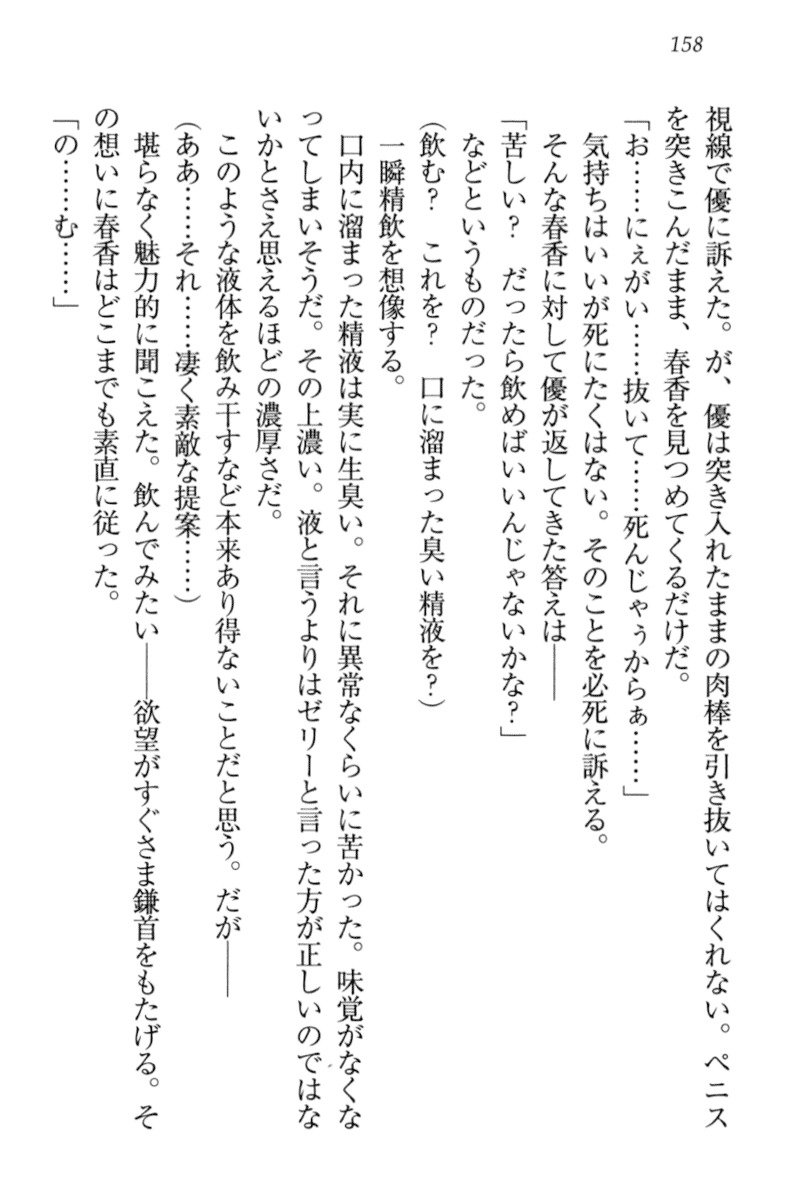 158
視線で優に訴えた。が、優は突き入れたままの肉棒を引き抜いてはくれない。ペニス
を突きこんだまま、春香を見つめてくるだけだ。
「お……にぇがい……抜いて……死んじゃぅからぁ……」
気持ちはいいが死にたくはない。そのことを必死に訴える。
そんな春香に対して優が返してきた答えは――
「苦しい？　だったら飲めばいいんじゃないかな？」
などというものだった。
（飲む？　これを？　口に溜まった臭い精液を？）
一瞬精飲を想像する。
口内に溜まった精液は実に生臭い。それに異常なくらいに苦かった。味覚がなくな
ってしまいそうだ。その上濃い。液と言うよりはゼリーと言った方が正しいのではな
いかとさえ思えるほどの濃厚さだ。
このような液体を飲み干すなど本来あり得ないことだと思う。だが――
（ああ……それ……凄く素敵な提案……）
堪らなく魅力的に聞こえた。飲んでみたい――欲望がすぐさま鎌首をもたげる。そ
の想いに春香はどこまでも素直に従った。
「の……む……」